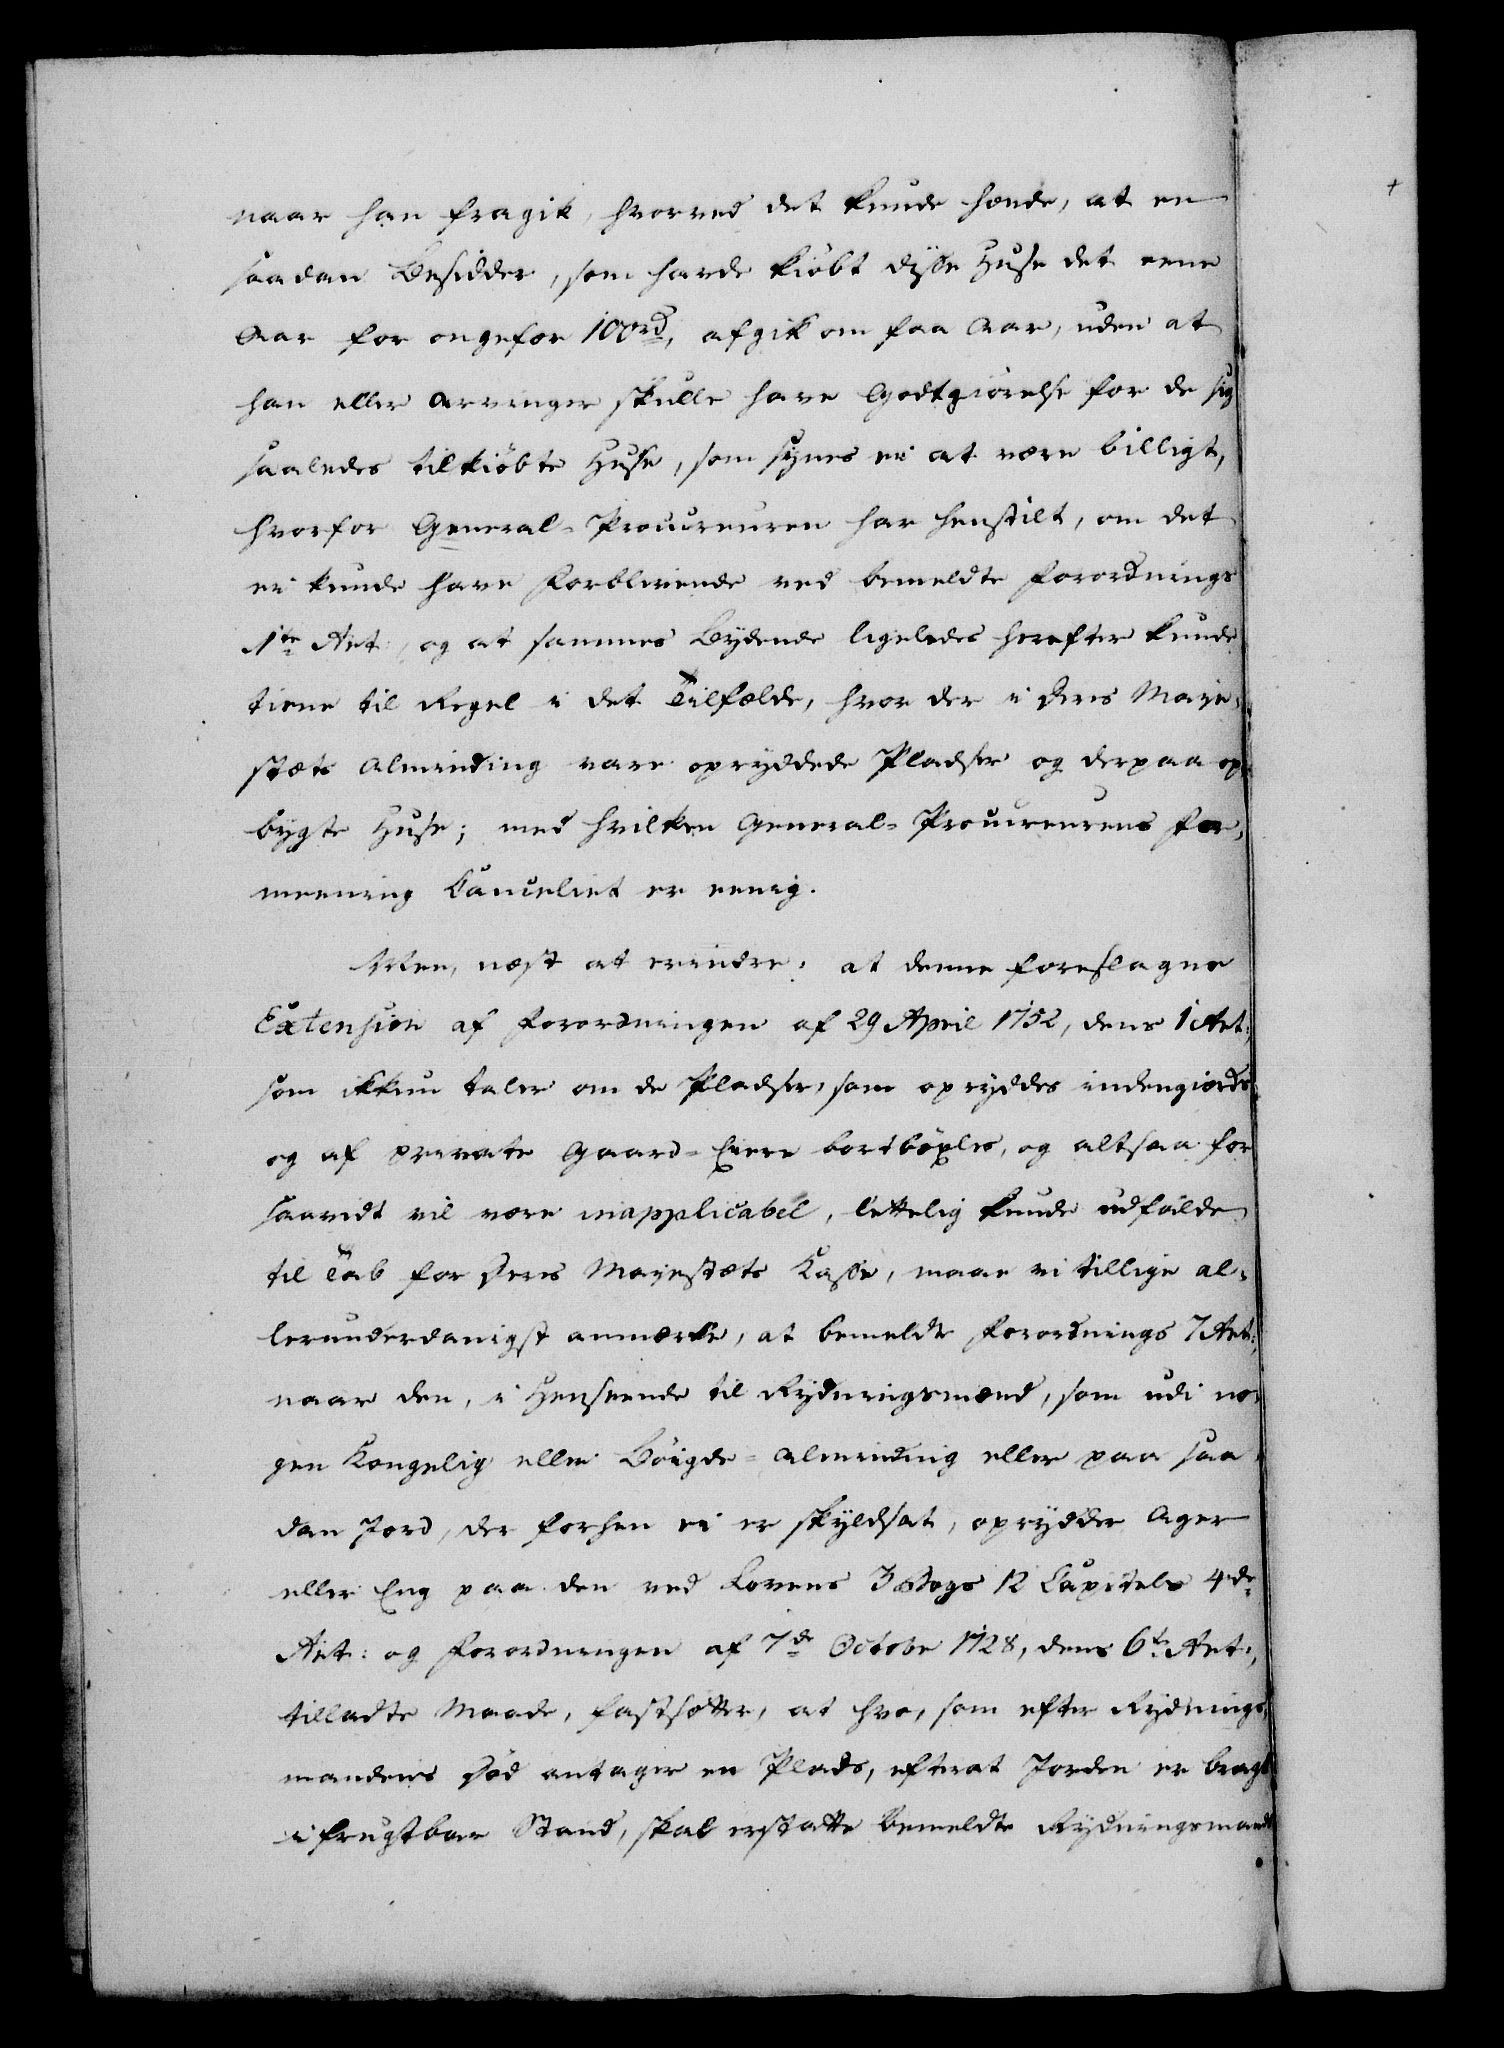 naar han fragik, hvorved det kunde hænde, at en
saadan Besidder, som havde kiöbt disse Huse det eene
Aar for ongefer 100rd, afgik om faa Aar, uden at
han eller Arvinger skulle have Godtgiörelse for de sig
saaledes tilkiöbte Huse, som synes ei at være billigt,
hvorfor General-Procureuren har henstilt, om det
ei kunde have Forblivende ved bemeldte Forordnings
1te Art:, og at sammes Bydende ligeledes herefter kunde
tiene til Regel i det Tilfælde, hvor der i Deres Maje-
stæts Alminding vare opryddede Pladser og derpaa op-
bygte Huse; med hvilken General-Procureurens For-
meening Canceliet er eenig.
Men, næst at erindre: at denne foreslagne
Extension af Forordningen af 29 April 1752, dens 1 Art:,
som ikkun taler om de Pladser, som opryddes indengierds
og af private Gaard-Eiere bortböxles, og altsaa for
saavidt vil være inapplicabel, lettelig kunde udfalde
til Tab for Deres Majestæts Kasse, maae vi tillige al-
lerunderdanigst anmærke, at bemeldte Forordnings 7 Art:,
naar den, i Henseende til Rydningsmænd, som udi no-
gen Kongelig eller Böigde-Alminding eller paa saa-
dan Jord, der forhen ei er skyldsat, oprydder Ager
eller Eng paa den ved Lovens 3 Bogs 12 Capitels 4de
Art: og Forordningen af 7de Octobr 1728, dens 6te Art:,
tilladte Maade, fastsætter, at hvo, som efter Rydnings-
mandens Död antager en Plads, efterat Jorden er bragt
i frugtbar Stand, skal erstatte bemeldte Rydningsmand